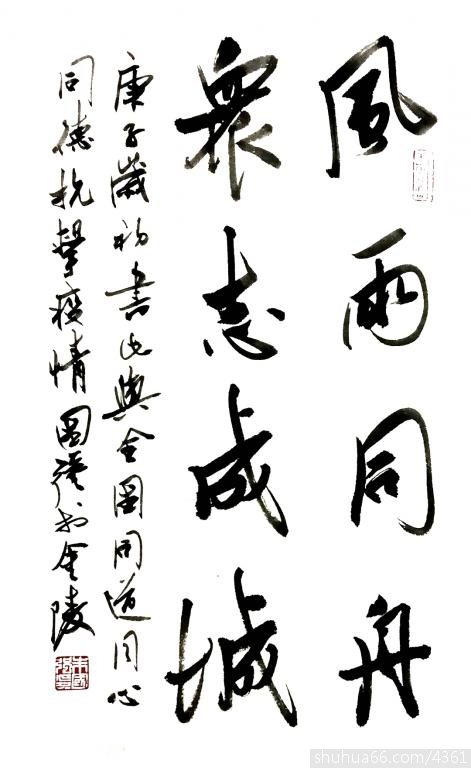 風雨同舟
衆志成城
庚子歲初書此與全國同道同心
同德抗擊疫情國強於金陵
shuhua66.com/4361